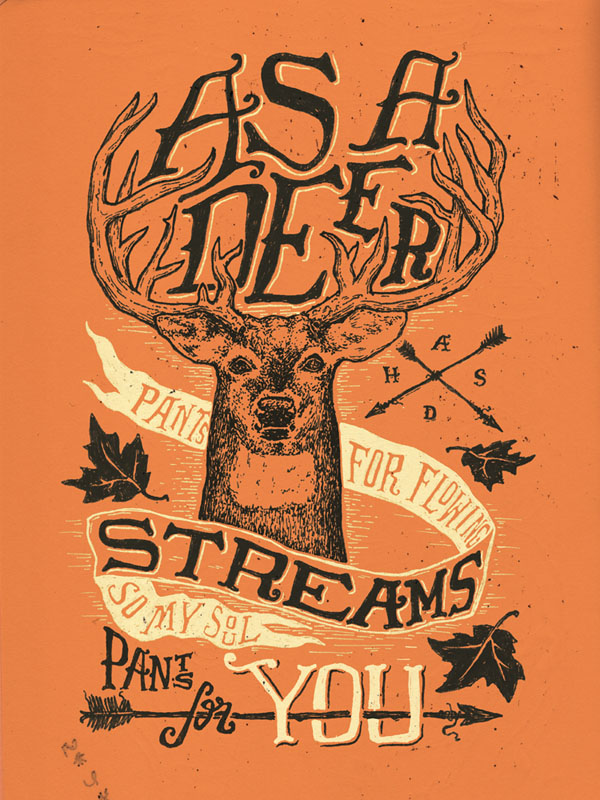 AS A
DEER
PANTS
FOR FLOWING
STREAMS
SO MY SOUL
PANTS
for YOU
Æ
H S
D